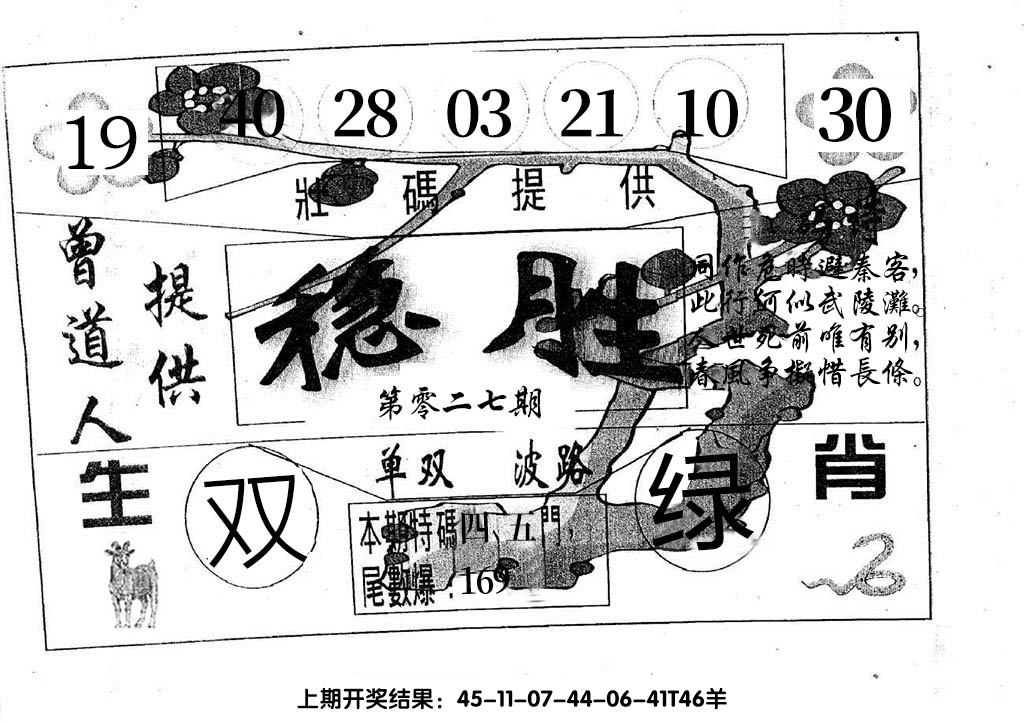 19 40 28 03 21 10 30
壯碼提供
特
曾道人
提供
稳胜
第零二七期
同作危時避秦客，
此行何似武陵灘。
人世死前唯有别，
春風争擬惜長條。
单双 波路
生肖
双
绿
本期特碼四、五門，
尾數爆：169
上期开奖结果：45-11-07-44-06-41T46羊